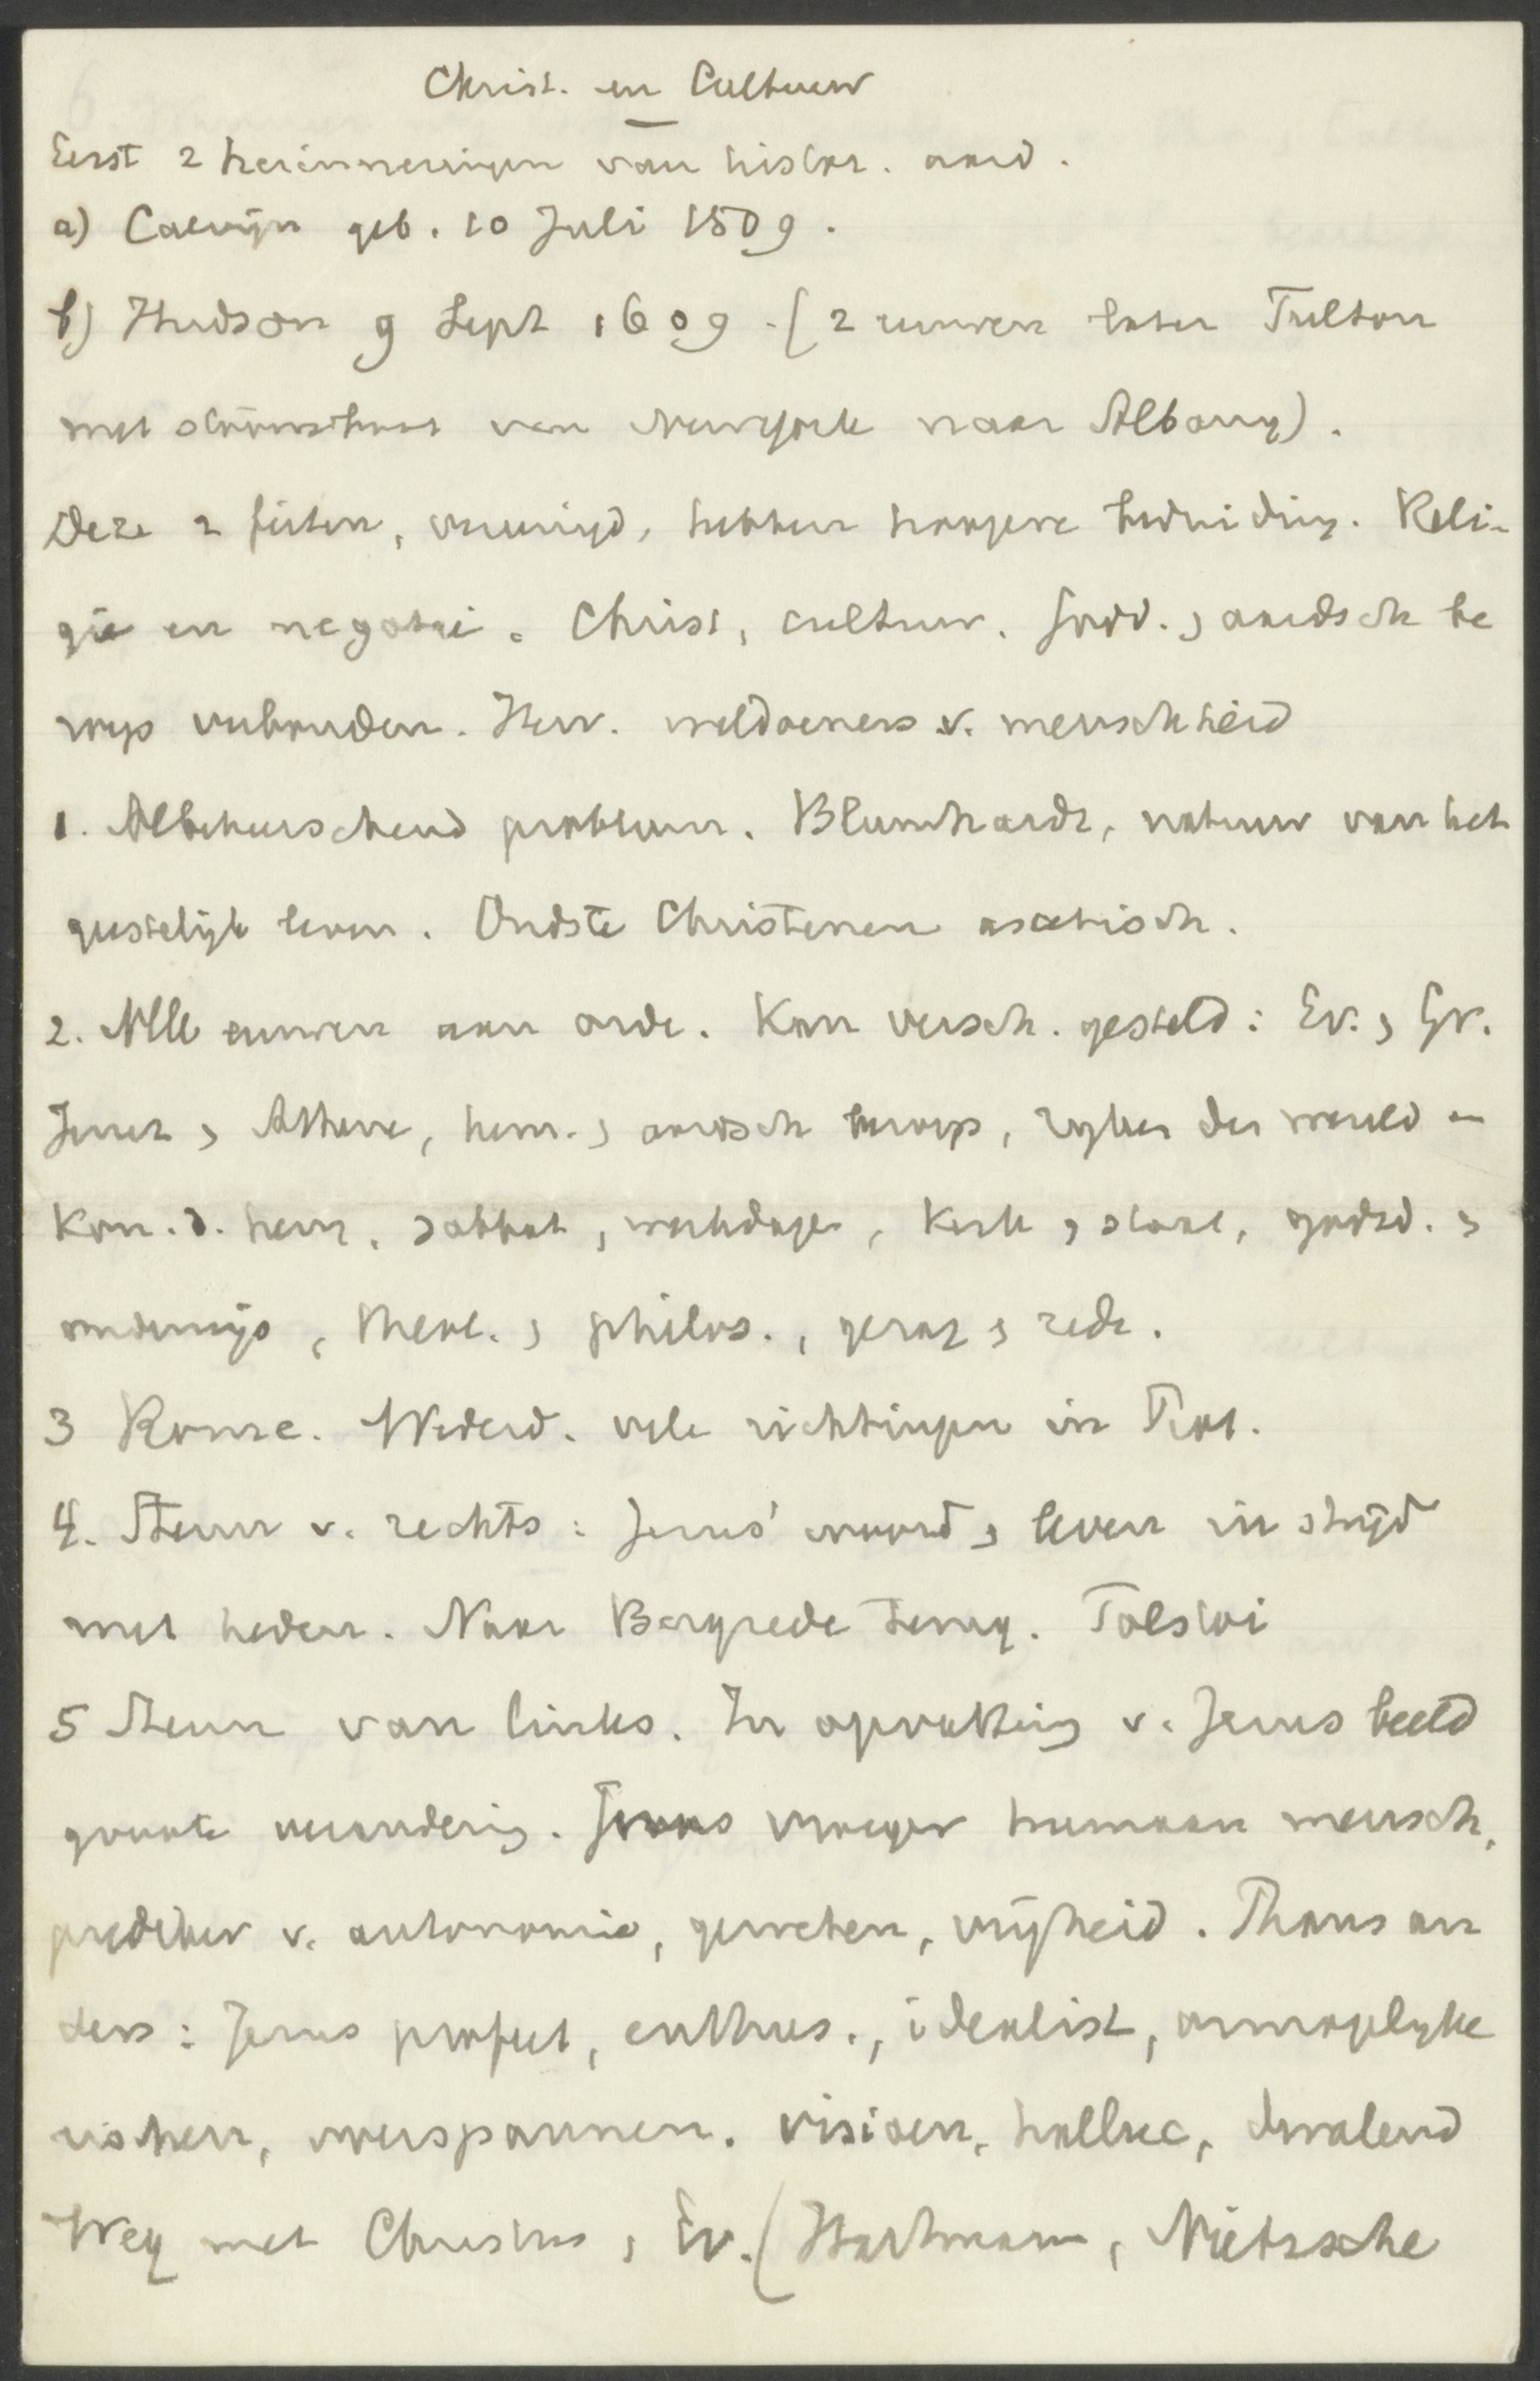 Christ. en Cultuur
Eerst 2 herinneringen van histor. aard.
a) Calvijn geb. 10 Juli 1509.
b) Hudson 9 Sept 1609. (2 eeuwen later Fulton
met stoomboot van Newyork naar Albany).
Deze 2 feiten, vereenigd, hebben hoogere beduiding. Reli-
gie en negotie. Christ, cultuur. godd. , aardsch be
roep verbonden. Herv. weldoeners v. menschheid
1. Albeheerschend probleem. Blumhardt, natuur van het
geestelijk leven. Oudste Christenen ascetisch.
2. Alle eeuwen aan orde. Kan versch. gesteld: Ev. , Gr.
Jeruz , Athene, hem. , aardsch beroep, ryken der wereld en
Kon. d. hem. sabbat, werkdagen, Kerk , staat, godsd. ,
onderwijs, theol. , philos., geloof , rede.
3 Rome. Wederd. vele richtingen in Prot.
4. Steun v. rechts: Jezus' woord , leven in strijd
met heden. Naar Bergrede terug. Tolstoi
5 Steun van links. In opvatting v. Jezus beeld
groote verandering. Jezus vroeger humaan mensch,
prediker v. autonomie, geweten, vrijheid. Thans an
ders: Jezus profeet, enthus., idealist, onmogelyke
eischen, overspannen. visioen, halluc, dwalend
Weg met Christus , Ev. (Hartmann, Nietzsche